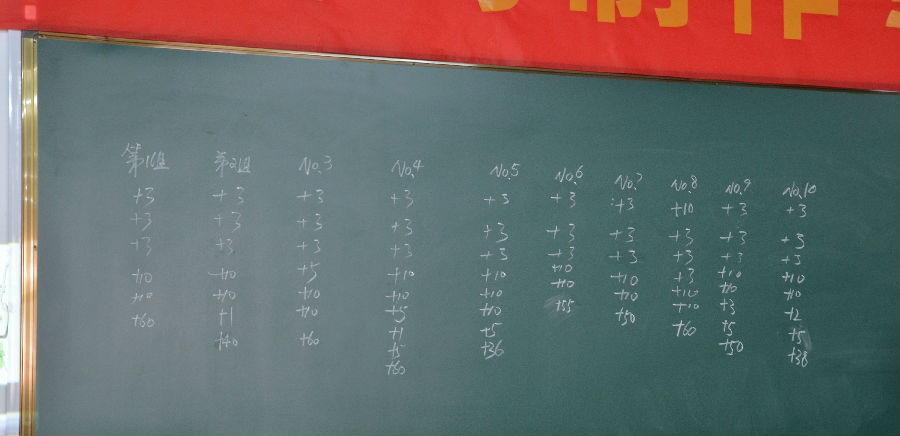 制作
第1组 第2组 No.3 No.4 No.5 No.6 No.7 No.8 No.9 No.10
+3 +3 +3 +3 +3 +3 +3 +10 +3 +3
+3 +3 +3 +3 +3 +3 +3 +3 +3 +3
+3 +3 +3 +3 +3 +3 +3 +3 +3 +3
+10 +10 +5 +10 +10 +10 +10 +3 +10 +10
+10 +10 +10 +10 +10 +10 +10 +10 +10 +10
+60 +1 +10 +5 +10 +55 +50 +10 +3 +2
+40 +60 +1 +5 +60 +5 +5
+5 +36 +50 +38
+60